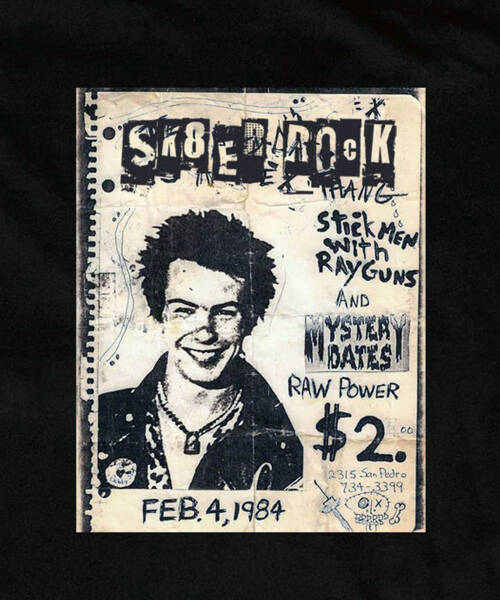 SK8ER ROCK
THANG
Stick MEN
with
RAYGUNS
AND
MYSTERY
DATES
RAW POWER
$2.00
2315 San Pedro
734-3399
FEB. 4, 1984